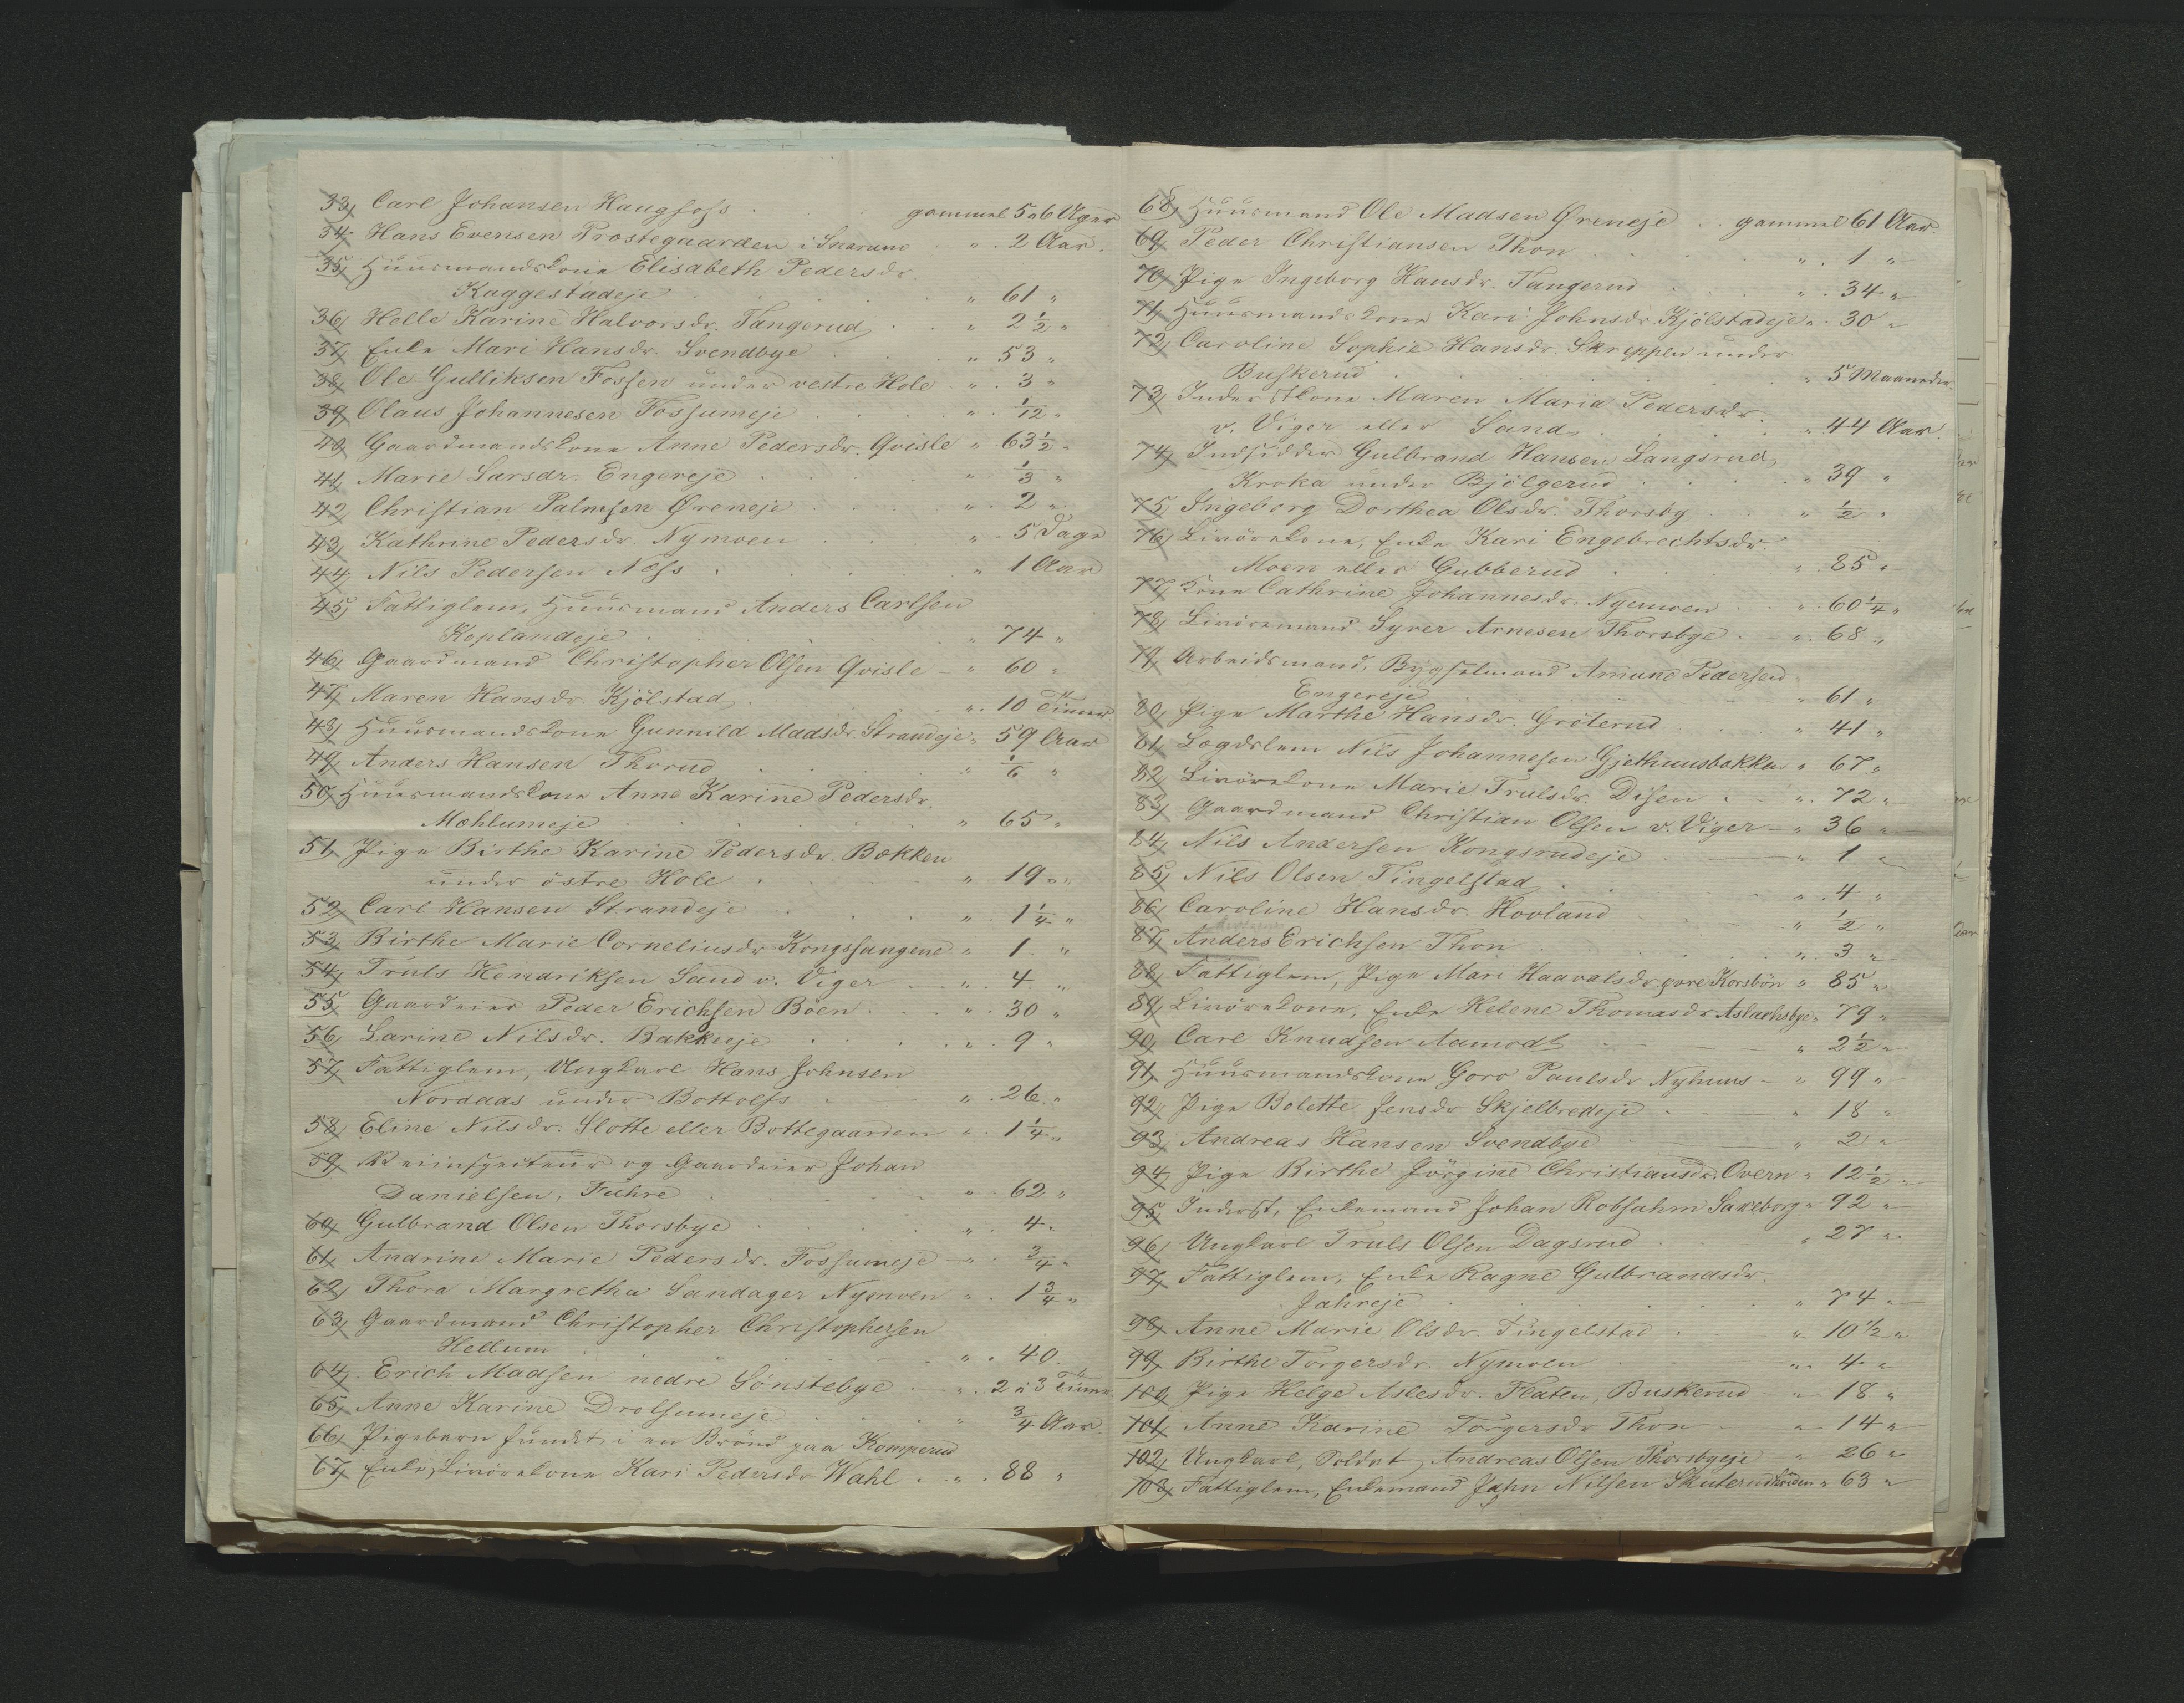 33, Carl Johansen Haugfoss . . gammel 5 a 6 Uger
34, Hans Evensen Prostegaarden i Snarum " . 2 Aar.
35, Huusmandskone Elisabeth Pedersdr.
Kaggestadeje . . . " 61 "
36, Helle Karine Halvorsdr. Tangerud . . " 2 1/2 "
37, Enke Mari Hansdr. Svendbye . . " 53 "
38, Ole Gulliksen Fossen under vestre Hole " . 3 "
39, Olaus Johannesen Fossumeje . . . " . 1/12 "
40, Gaardmandskone Anne Pedersdr. Qvisle " 63 1/2 "
41, Marie Larsdr. Engereje . . . " 1/3 "
42, Christian Palmesen Øreneje . . . " . 2 "
43, Kathrine Pedersdr. Nymoen . . " . 5 Dage
44, Nils Pedersen Næss . . . " 1 Aar
45, Fattiglem, Huusmand Anders Carlsen
Koplandeje . . . " 74 "
46, Gaardmand Christopher Olsen Qvisle - " 60 "
47, Maren Hansdr. Kjölstad . . . " . 10 Timer
48, Huusmandskone Gunnild Madsdr. Strandeje " 59 Aar
49, Anders Hansen Thorud . . . " 1/6 "
50, Huusmandskone Anne Karine Pedersdr.
Mæhlumeje . . . " 65 "
51, Pige Birthe Karine Pedersdr. Bækken
under östre Hole . . . " 19 "
52, Carl Hansen Strandeje . . . " . 1 1/4 "
53, Birthe Marie Corneliusdr. Kongssangene " 1 "
54, Truls Hendriksen Sand v. Viger . . " . 4 "
55, Gaardeier Peder Erichsen Böen . . . " . 30 "
56, Larine Nilsdr. Bakkeeje . . . " . 9 "
57, Fattiglem, Ungkarl Hans Johnsen
Nordaas under Bottolfs . . . " . 26 "
58, Eline Nilsdr. Slotte eller Bottegaarden " . 1 1/4 "
59, Veiinspecteur og Gaardeier Johan
Danielsen, Fuhre . . . " . 62 "
60, Gulbrand Olsen Thorsbye . . . " . 4 "
61, Andrine Marie Pedersdr. Fossumeje - " . 3/4 "
62, Thora Margretha Sandager Nymoen " . 1 3/4 "
63, Gaardmand Christopher Christophersen
Hellum . . . " . 40.
64, Erich Madsen nedre Sönstebye . . " . 2 a 3 Timer
65, Anne Karine Drolsumeje . . . " 3/4 Aar
66, Pigebarn fundet i en Brönd paa Komperud
67, Enke, Livörekone Kari Pedersdr Wahl . . " . 88 "
68, Huusmand Ole Madsen Øreneje . . gammel 61 Aar.
69, Peder Christiansen Thon . . . " . 1 "
70, Pige Ingeborg Hansdr. Tangerud . . . " . 34 "
71, Huusmandskone Kari Johnsdr. Kjölstadeje " . 30 "
72, Caroline Sophie Hansdr. Skreppen under
Buskerud . . . " 5 Maaneder.
73, Inderstkone Maren Maria Pedersdr.
v. Viger eller Sand . . . " . 44 Aar.
74, Indsidder Gulbrand Hansen Langsrud,
Kroka under Bjölgerud . . . " 39 "
75, Ingeborg Dorthea Olsdr. Thorsby . . " 1/2 "
76, Livörekone, Enke Kari Engebrechtsdr.
Moen eller Gubberud . . . " . 85 "
77, Kone Cathrine Johannesdr. Nyemoen . . " . 60 1/4 "
78, Livöremand Syver Arnesen Thorsbye . " . 68 "
79, Arbeidsmand, Bygselmand Amund Pedersen
Engereje . . . " 61 "
80, Pige Marthe Hansdr. Gröterud . . . " 41 "
81, Lægdslem Nils Johannesen Gjethuusbakken " 67 "
82, Livörekone Marie Trulsdr. Disen . - " . 72 "
83, Gaardmand Christian Olsen v. Viger - " 36 "
84, Nils Andersen Kongsrudeje . - " 1 "
85, Nils Olsen Tingelstad . . . " . 4 "
86, Caroline Hansdr. Hovland . . . " 1/2 "
87, Anders Erichsen Thon . . . " . 3 "
88, Fattiglem, Pige Mari Haavalsdr. øvre Korsbön " 85 "
89, Livörekone, Enke Helene Thomasdr. Aslachsbye " 79 "
90, Carl Knudsen Aamodt . . - " 2 1/2 "
91, Huusmandskone Goro Paulsdr Nyhuus - " 99 "
92, Pige Bolette Jensdr Skjelbredeje . - " 18 "
93, Andreas Hansen Svendbye . - " 2 "
94, Pige Birthe Jörgine Christiansdr. Overn " 12 1/2 "
95, Inderst, Enkemand Johan Robsahm Sakeborg " 92 "
96, Ungkarl Truls Olsen Dagsrud . . " 27 "
97, Fattiglem, Enke Ragne Gulbrandsdr.
Jahreje . . . " 74 "
98, Anne Marie Olsdr. Tingelstad . . " 10 1/2 "
99, Birthe Torgersdr. Nymoen . . " 4 "
100, Pige Helge Aslesdr. Flaten, Buskerud " 18 "
101, Anne Karine Torgersdr Thon . . " 14 "
102, Ungkarl, Soldat, Andreas Olsen Thorsbyeje " 26 "
103, Fattiglem, Enkemand Jahn Nilsen Skuterud " 63 "